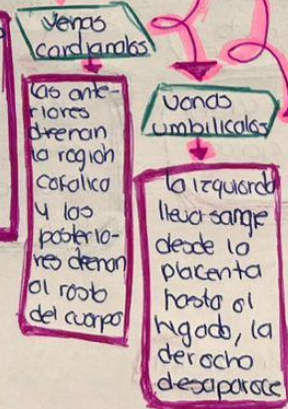 venas
cardianales
las ante-
riores
drenan
la región
cefálica
y las
posterio-
res drenan
al resto
del cuerpo
venas
umbilicales
la izquierda
lleva sangre
desde la
placenta
hasta el
higado, la
derecha
desaparece